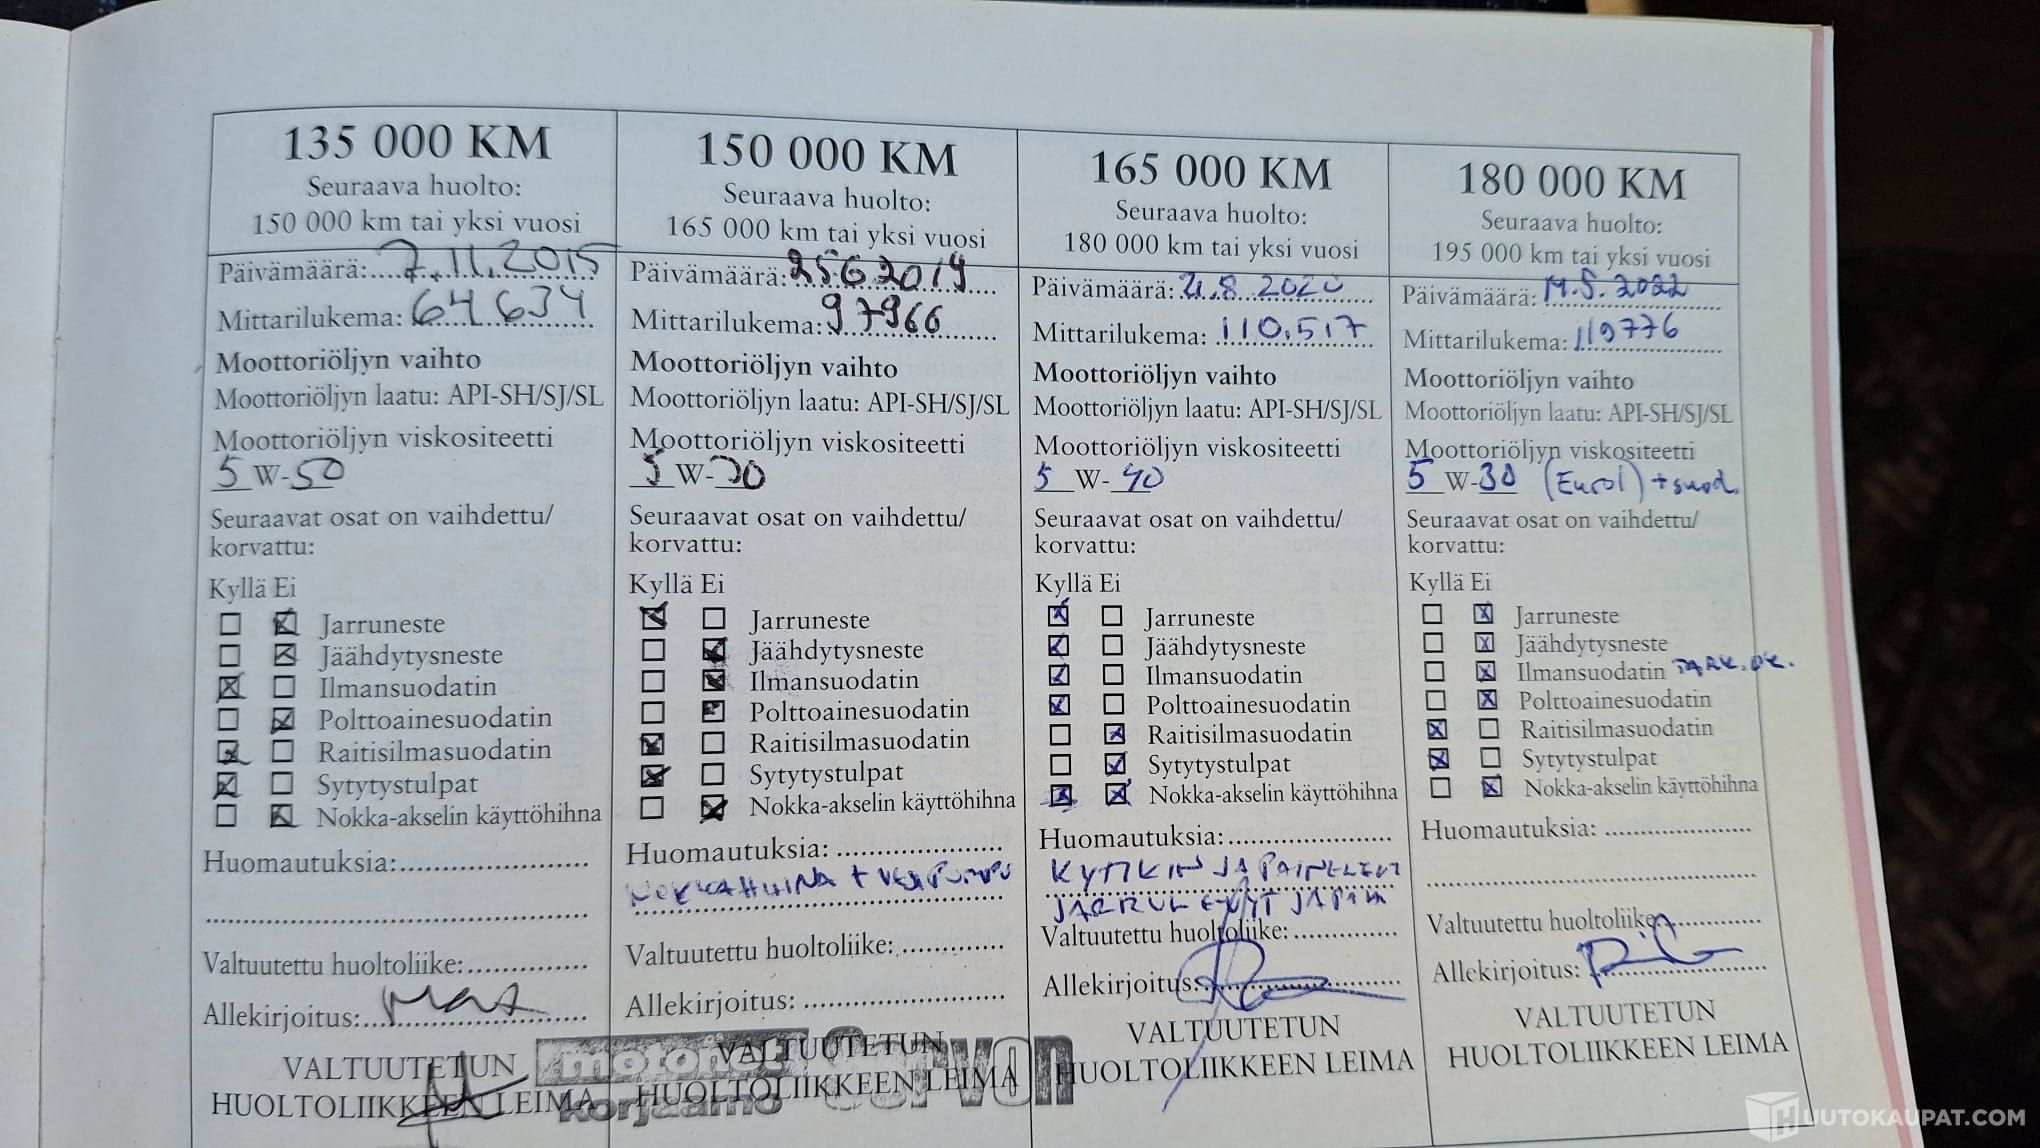 135 000 KM
Seuraava huolto:
150 000 km tai yksi vuosi
Päivämäärä: 7.11.2015
Mittarilukema: 64 634
Moottoriöljyn vaihto
Moottoriöljyn laatu: API-SH/SJ/SL
Moottoriöljyn viskositeetti
5 W-50
Seuraavat osat on vaihdettu/
korvattu:
Kyllä Ei
Jarruneste
Jäähdytysneste
Ilmansuodatin
Polttoainesuodatin
Raitisilmasuodatin
Sytytystulpat
Nokka-akselin käyttöhihna
Huomautuksia:
Valtuutettu huoltoliike:
Allekirjoitus:
VALTUUTETUN
HUOLTOLIIKKEEN LEIMA
150 000 KM
Seuraava huolto:
165 000 km tai yksi vuosi
Päivämäärä: 25.6.2019
Mittarilukema: 97966
Moottoriöljyn vaihto
Moottoriöljyn laatu: API-SH/SJ/SL
Moottoriöljyn viskositeetti
5 W-30
Seuraavat osat on vaihdettu/
korvattu:
Kyllä Ei
Jarruneste
Jäähdytysneste
Ilmansuodatin
Polttoainesuodatin
Raitisilmasuodatin
Sytytystulpat
Nokka-akselin käyttöhihna
Huomautuksia:
NOKKAHIHNA + VESIPUMPPU
Valtuutettu huoltoliike:
Allekirjoitus:
VALTUUTETUN
HUOLTOLIIKKEEN LEIMA
Korjaamo
165 000 KM
Seuraava huolto:
180 000 km tai yksi vuosi
Päivämäärä: 21.8.2020
Mittarilukema: 110.517
Moottoriöljyn vaihto
Moottoriöljyn laatu: API-SH/SJ/SL
Moottoriöljyn viskositeetti
5 W-40
Seuraavat osat on vaihdettu/
korvattu:
Kyllä Ei
Jarruneste
Jäähdytysneste
Ilmansuodatin
Polttoainesuodatin
Raitisilmasuodatin
Sytytystulpat
Nokka-akselin käyttöhihna
Huomautuksia:
KYTKIN JA PAINELEVY
JARRULEVYT JA
Valtuutettu huoltoliike:
Allekirjoitus:
VALTUUTETUN
HUOLTOLIIKKEEN LEIMA
180 000 KM
Seuraava huolto:
195 000 km tai yksi vuosi
Päivämäärä: 14.5.2022
Mittarilukema: 119776
Moottoriöljyn vaihto
Moottoriöljyn laatu: API-SH/SJ/SL
Moottoriöljyn viskositeetti
5 W-30 (Eurol) + suod.
Seuraavat osat on vaihdettu/
korvattu:
Kyllä Ei
Jarruneste
Jäähdytysneste
Ilmansuodatin TARK. OK.
Polttoainesuodatin
Raitisilmasuodatin
Sytytystulpat
Nokka-akselin käyttöhihna
Huomautuksia:
Valtuutettu huoltoliike:
Allekirjoitus:
VALTUUTETUN
HUOLTOLIIKKEEN LEIMA
HUUTOKAUPAT.COM